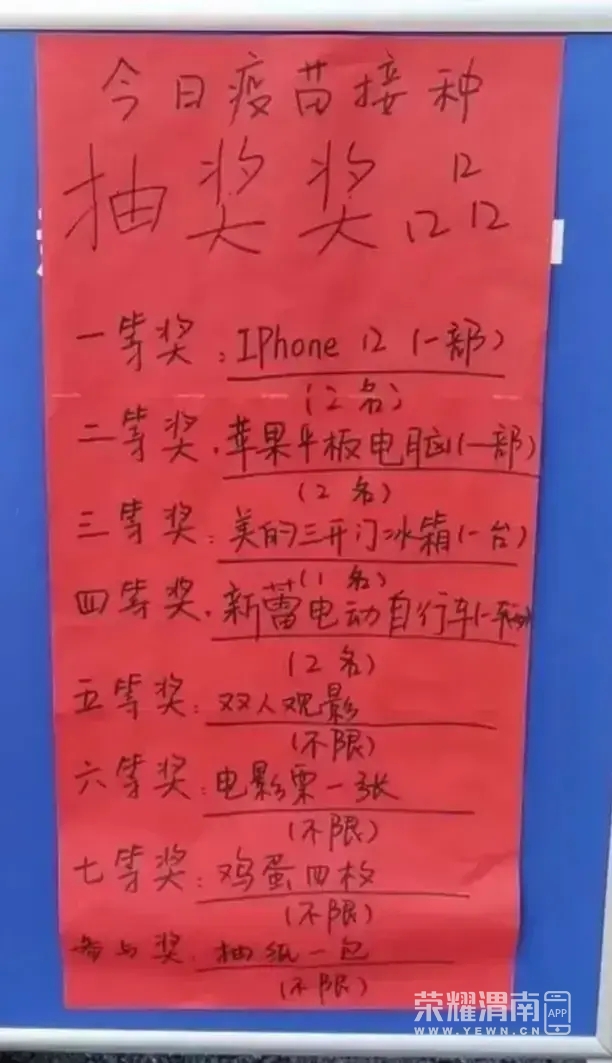 今日疫苗接种
抽奖奖品
一等奖：IPhone 12 (一部)
(2名)
二等奖．苹果平板电脑(一部)
(2名)
三等奖：美的三开门冰箱(一台)
(1名)
四等奖．新蕾电动自行车(一辆)
(2名)
五等奖：双人观影
(不限)
六等奖：电影票一张
(不限)
七等奖：鸡蛋四枚
(不限)
参与奖．抽纸一包
(不限)
荣耀渭南 APP
WWW.YEWN.CN